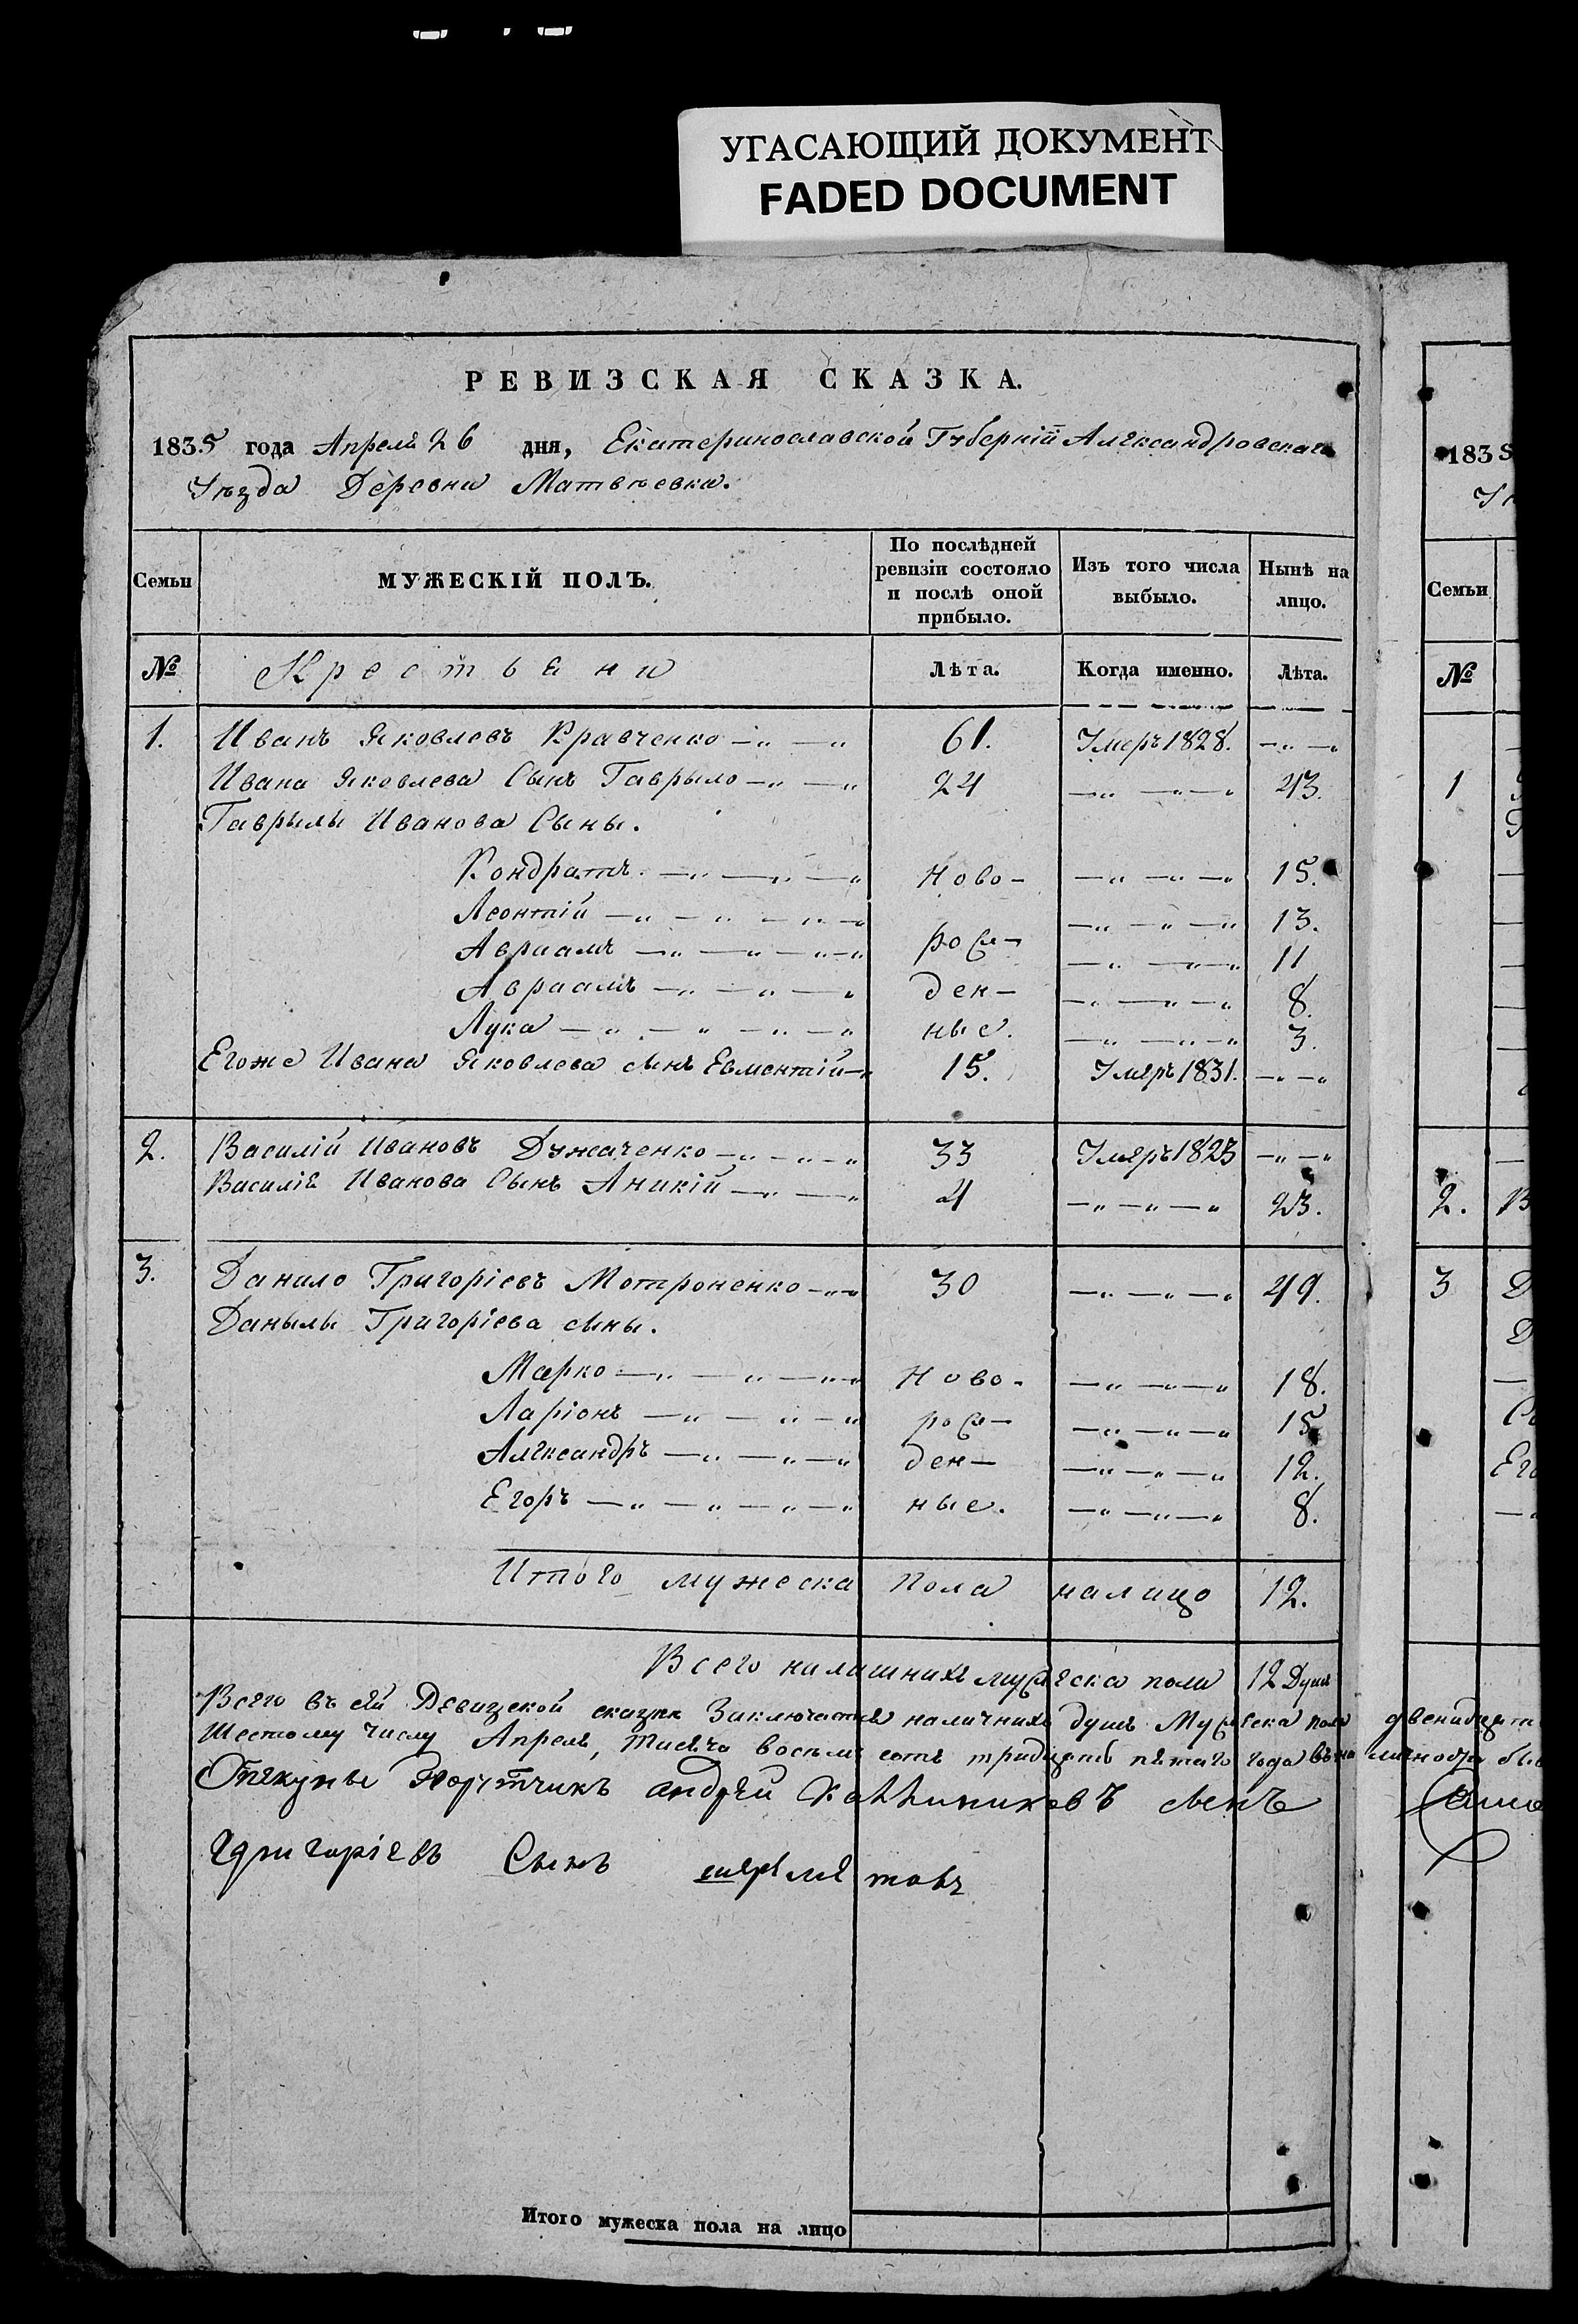 УГАСАЮЩИЙ ДОКУМЕНТ
FADED DOCUMENT
РЕВИЗСКАЯ СКАЗКА.
1835 года Апреля 26 дня, Екатеринославской Губерніи Александровскаго
Уѣзда Деревни Матвѣевки.
Семьи
МУЖЕСКІЙ ПОЛЪ.
По послѣдней ревизіи состояло и послѣ оной прибыло.
Изъ того числа выбыло.
Нынѣ на лицо.
№ Крестьяни Лѣта. Когда именно. Лѣта.
1. Иванъ Яковлевъ Кравченко —„—„ 61. Умеръ 1828. —„—„
Ивана Яковлева Сынъ Гаврыло —„—„ 24 —„—„—„ 43.
Гаврылы Иванова Сыны.
Кондратъ —„—„—„ Ново- —„—„—„ 15.
Леонтій —„—„—„—„ —„—„—„ 13.
Авраамъ —„—„—„—„ рож- —„—„—„ 11
Авраамъ —„—„—„ ден- —„—„—„ 8.
Лука —„—„—„—„ ные. —„—„—„ 3.
Егоже Ивана Яковлева сынъ Евментій —„ 15. Умеръ 1831. —„—„
2. Василій Ивановъ Дужаченко —„—„—„ 33 Умеръ 1823 —„—„
Василія Иванова Сынъ Аникій —„—„ 4 —„—„—„ 23.
3. Данило Григоріевъ Мотроненко —„—„ 30 —„—„—„ 49.
Данылы Григоріева сыны.
Марко —„—„—„—„ Ново- —„—„—„ 18.
Ларіонъ —„—„—„ рож- —„—„—„ 15.
Александръ —„—„—„ ден- —„—„—„ 12.
Егоръ —„—„—„—„ ные. —„—„—„ 8.
Итого мужеска пола налицо 12.
Всего налишнихъ мужеска пола 12 Душъ
Всего въ сей Ревизской сказке Заключается наличнихъ душъ Мужеска пола двенидцать
Шестому числу Апреля, тисяча восемь сотъ тридцать пятаго года въ на личности
Опекуны Порутчикъ андрей сынъ
Григоріевъ Сынъ шереметовъ
Итого мужеска пола на лицо
1835
Семьи
№
1
2.
3